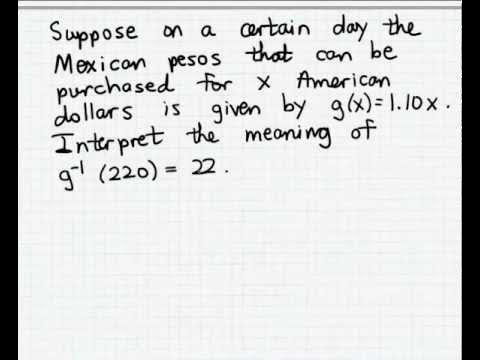 Suppose on a certain day the
Mexican pesos that can be
purchased for x American
dollars is given by g(x)=1.10x.
Interpret the meaning of
g⁻¹ (220) = 22.